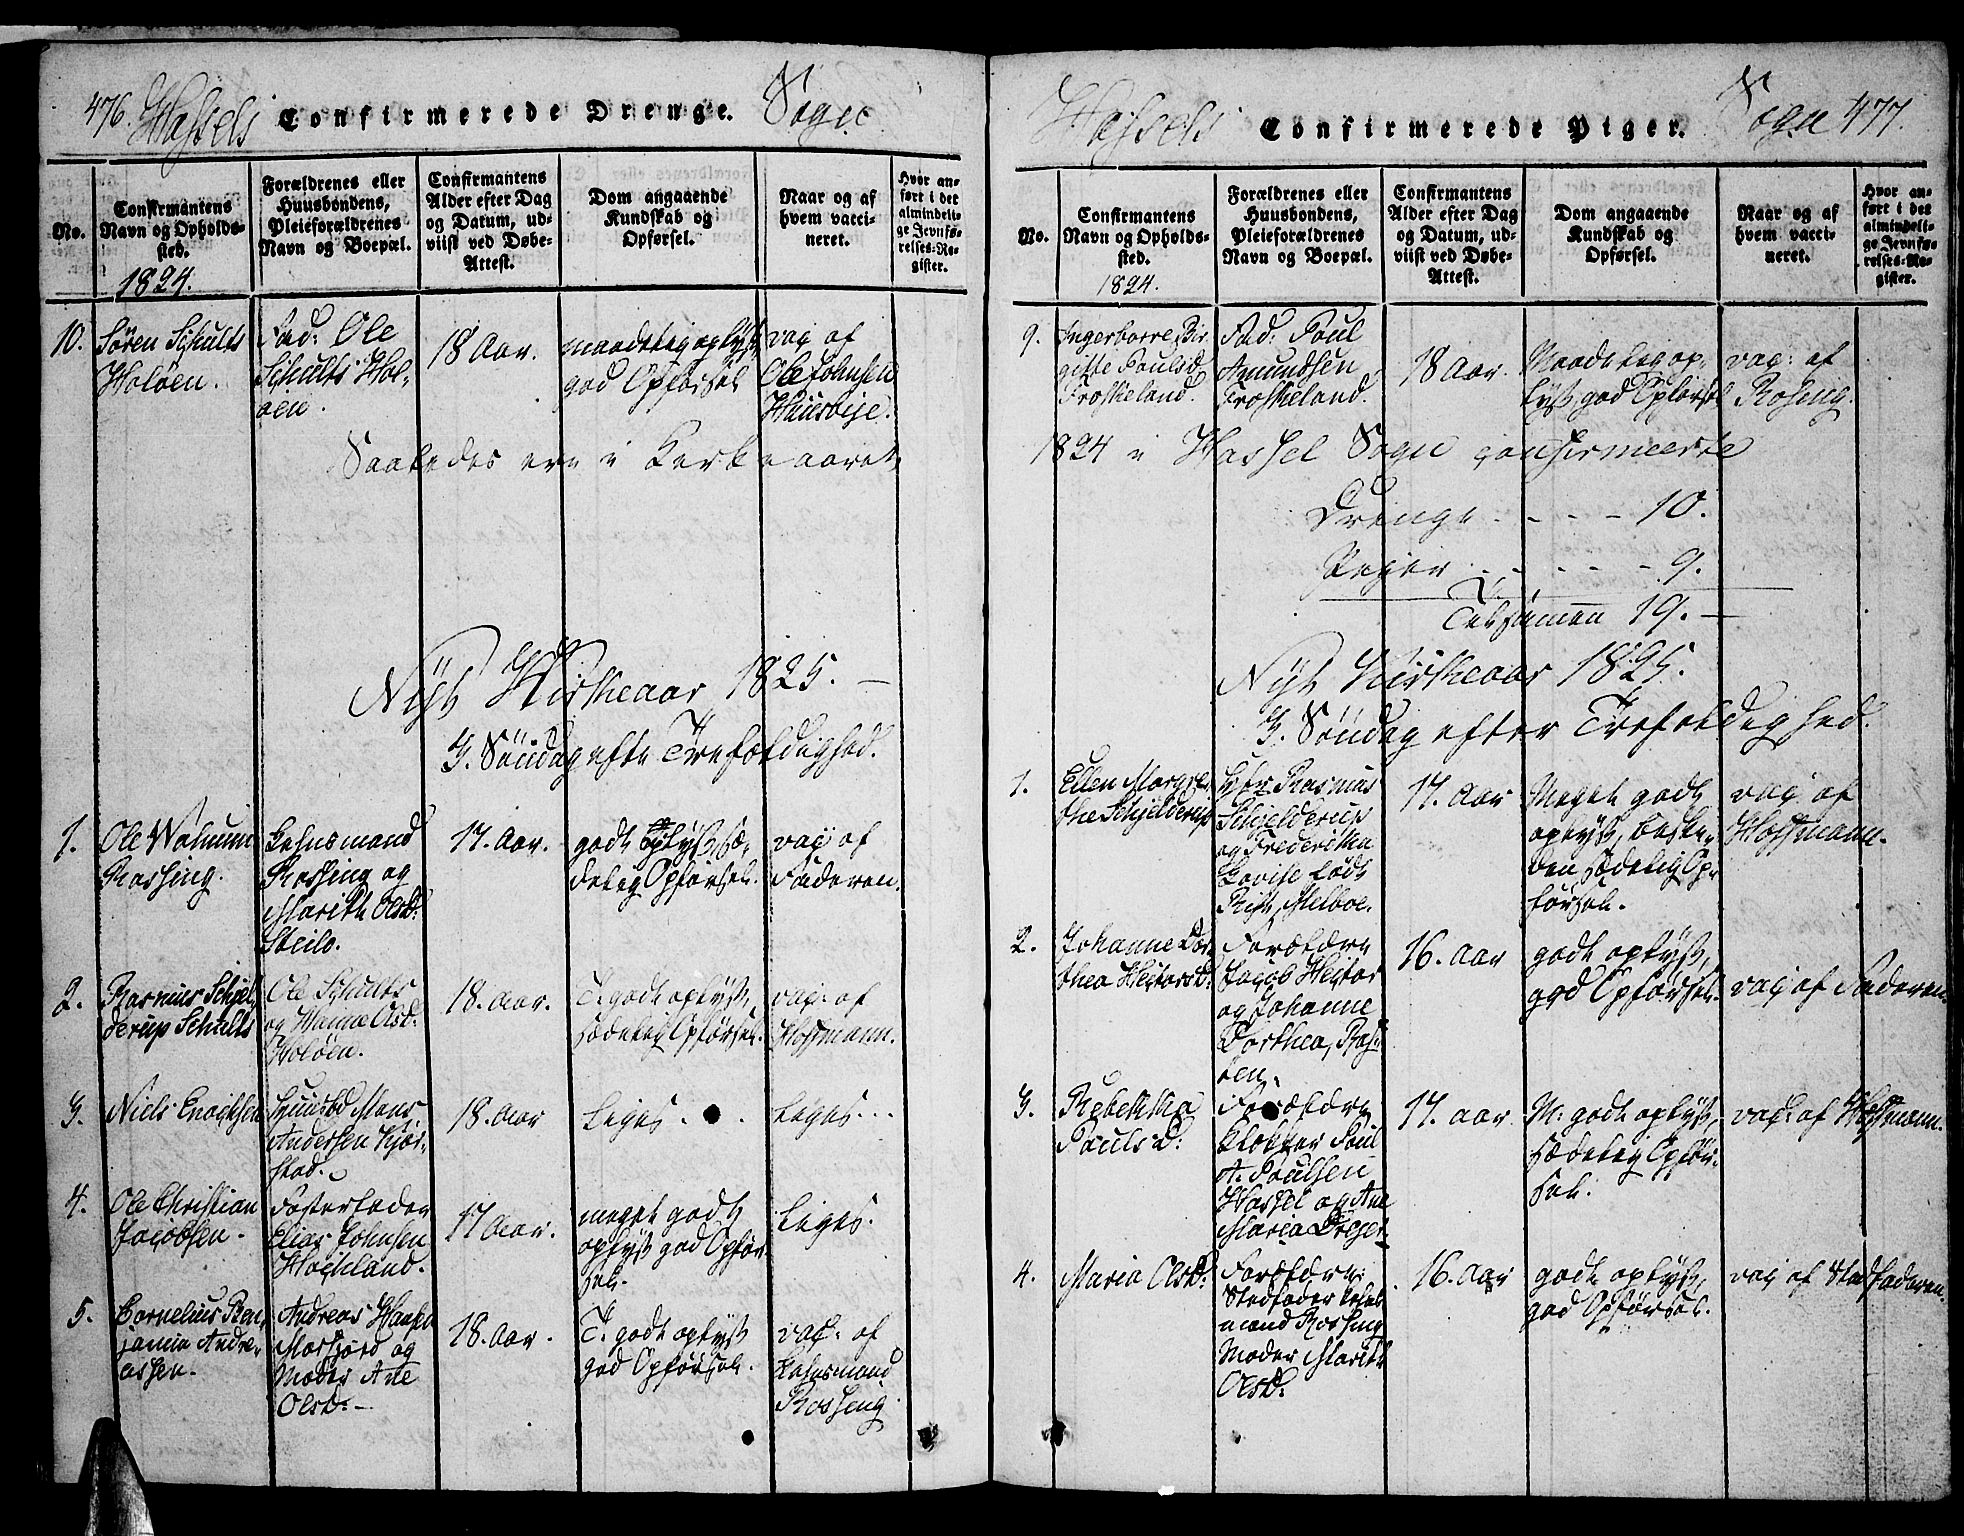 476. Hassels Confirmerede Drenge. Sogn
No.
Confirmantens
Navn og Opholds-
sted.
1824.
Forældrenes eller
Huusbondens,
Pleieforældrenes
Navn og Boepæl.
Confirmantens
Alder efter Dag
og Datum, ud-
viist ved Døbe-
Attest.
Dom angaaende
Kundskab og
Opførsel.
Naar og af
hvem vacci-
neret.
Hvor an-
ført i det
almindeli-
ge Jevnfø-
relses-Re-
gister.
10.
Søren Schults
Holøen.
Fad: Ole
Schults Hol-
øen.
18 Aar.
maadelig oplyst
god Opførsel
vac af
Ole Johnsen
Saaledes ere i Kirkeaaret
Nyt Kirkeaar 1825.
3. Søndag efte Trefoldighed.
1.
Ole
Rossing.
Lehnsmand
Rossing og
Marith Olsd:
Steilo.
17. Aar.
godt oplyst, sæ-
delig Opførsel.
vac af
Faderen.
2.
Rasmus Schjel-
derup Schults
Ole Schults
og Olsd:
Holøen.
18. Aar.
T. godt oplyst,
sædelig Opførsel.
vac: af
Hoffmann.
3.
Niels Enochsen
Huusbd Mons
Andersen Kjør-
stad.
18. Aar
Liges.
Liges...
4.
Ole Christian
Jacobsen.
Fosterfader
Elias Johnsen
Hochland.
17 Aar.
meget godt
oplyst god Opfør-
sel.
Liges.
5.
Cornelius Ben-
jamin Andre-
assen.
Andreas
Morfjord og
Moder Ane
Olsd:-
18. Aar.
T. godt oplyst
god Opførsel.
vac: af
Lehnsmand
Rossing
Hassels Confirmerede Piger. Sogn 477.
No.
Confirmantens
Navn og Opholds-
sted.
1824.
Forældrenes eller
Huusbondens,
Pleieforældrenes
Navn og Boepæl.
Confirmantens
Alder efter Dag
og Datum, ud-
viist ved Døbe-
Attest.
Dom angaaende
Kundskab og
Opførsel.
Naar og af
hvem vacci-
neret.
Hvor an-
ført i det
almindeli-
ge Jevnfø-
relses-Re-
gister.
9.
Ingerborre Bir-
gitte Poulsd
Froskeland.
Fad: Poul
Amundsen
Froskeland.
18 Aar.
Maadelig op-
lyst, god Opførsel
vac: af
Rosing.
1824 i Hassel Sogn confirmeerte
Drenge - - - - 10.
Peger - - - - - 9.
Tilsamen 19. -
Nyt Kirkeaar 1825.
3. Søndag efter Trefoldighed.
1.
Ellen Margre-
the Schjelderup
Hr Rasmus
Schjelderup
og Frederikka
Lovise født
Rist, Melboe.
17. Aar
Meget godt
oplyst, beske-
den sædelig Op-
førsel.
vac af
Hoffmann.
2.
Johanne Dor-
thea Heitorsd:
Forældre
Jacob Heitor
og Johanne
Dorthea, Ras-
ten.
16. Aar
godt oplyst,
god Opførsel.
vac af Faderen.
3.
Rebekka
Paulsd:
Forældre
Klokker Poul
A. Poulsen
Hassel og Ane
Maria Dreyer
17. aar
M: godt oplyst,
sædelig Opfør-
sel.
vac: af Hoffmann.
4.
Maria Olsd:
Forældre:
Stedfader Lehns-
mand Rossing
Moder Marith
Olsd:
16. Aar
godt oplyst,
god Opførsel.
vac af Stedfaderen.